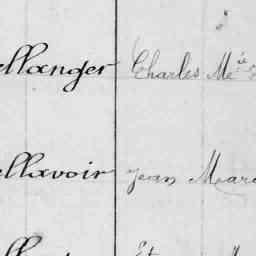 ellanger Charles Mie
ellavoir Jean Marc